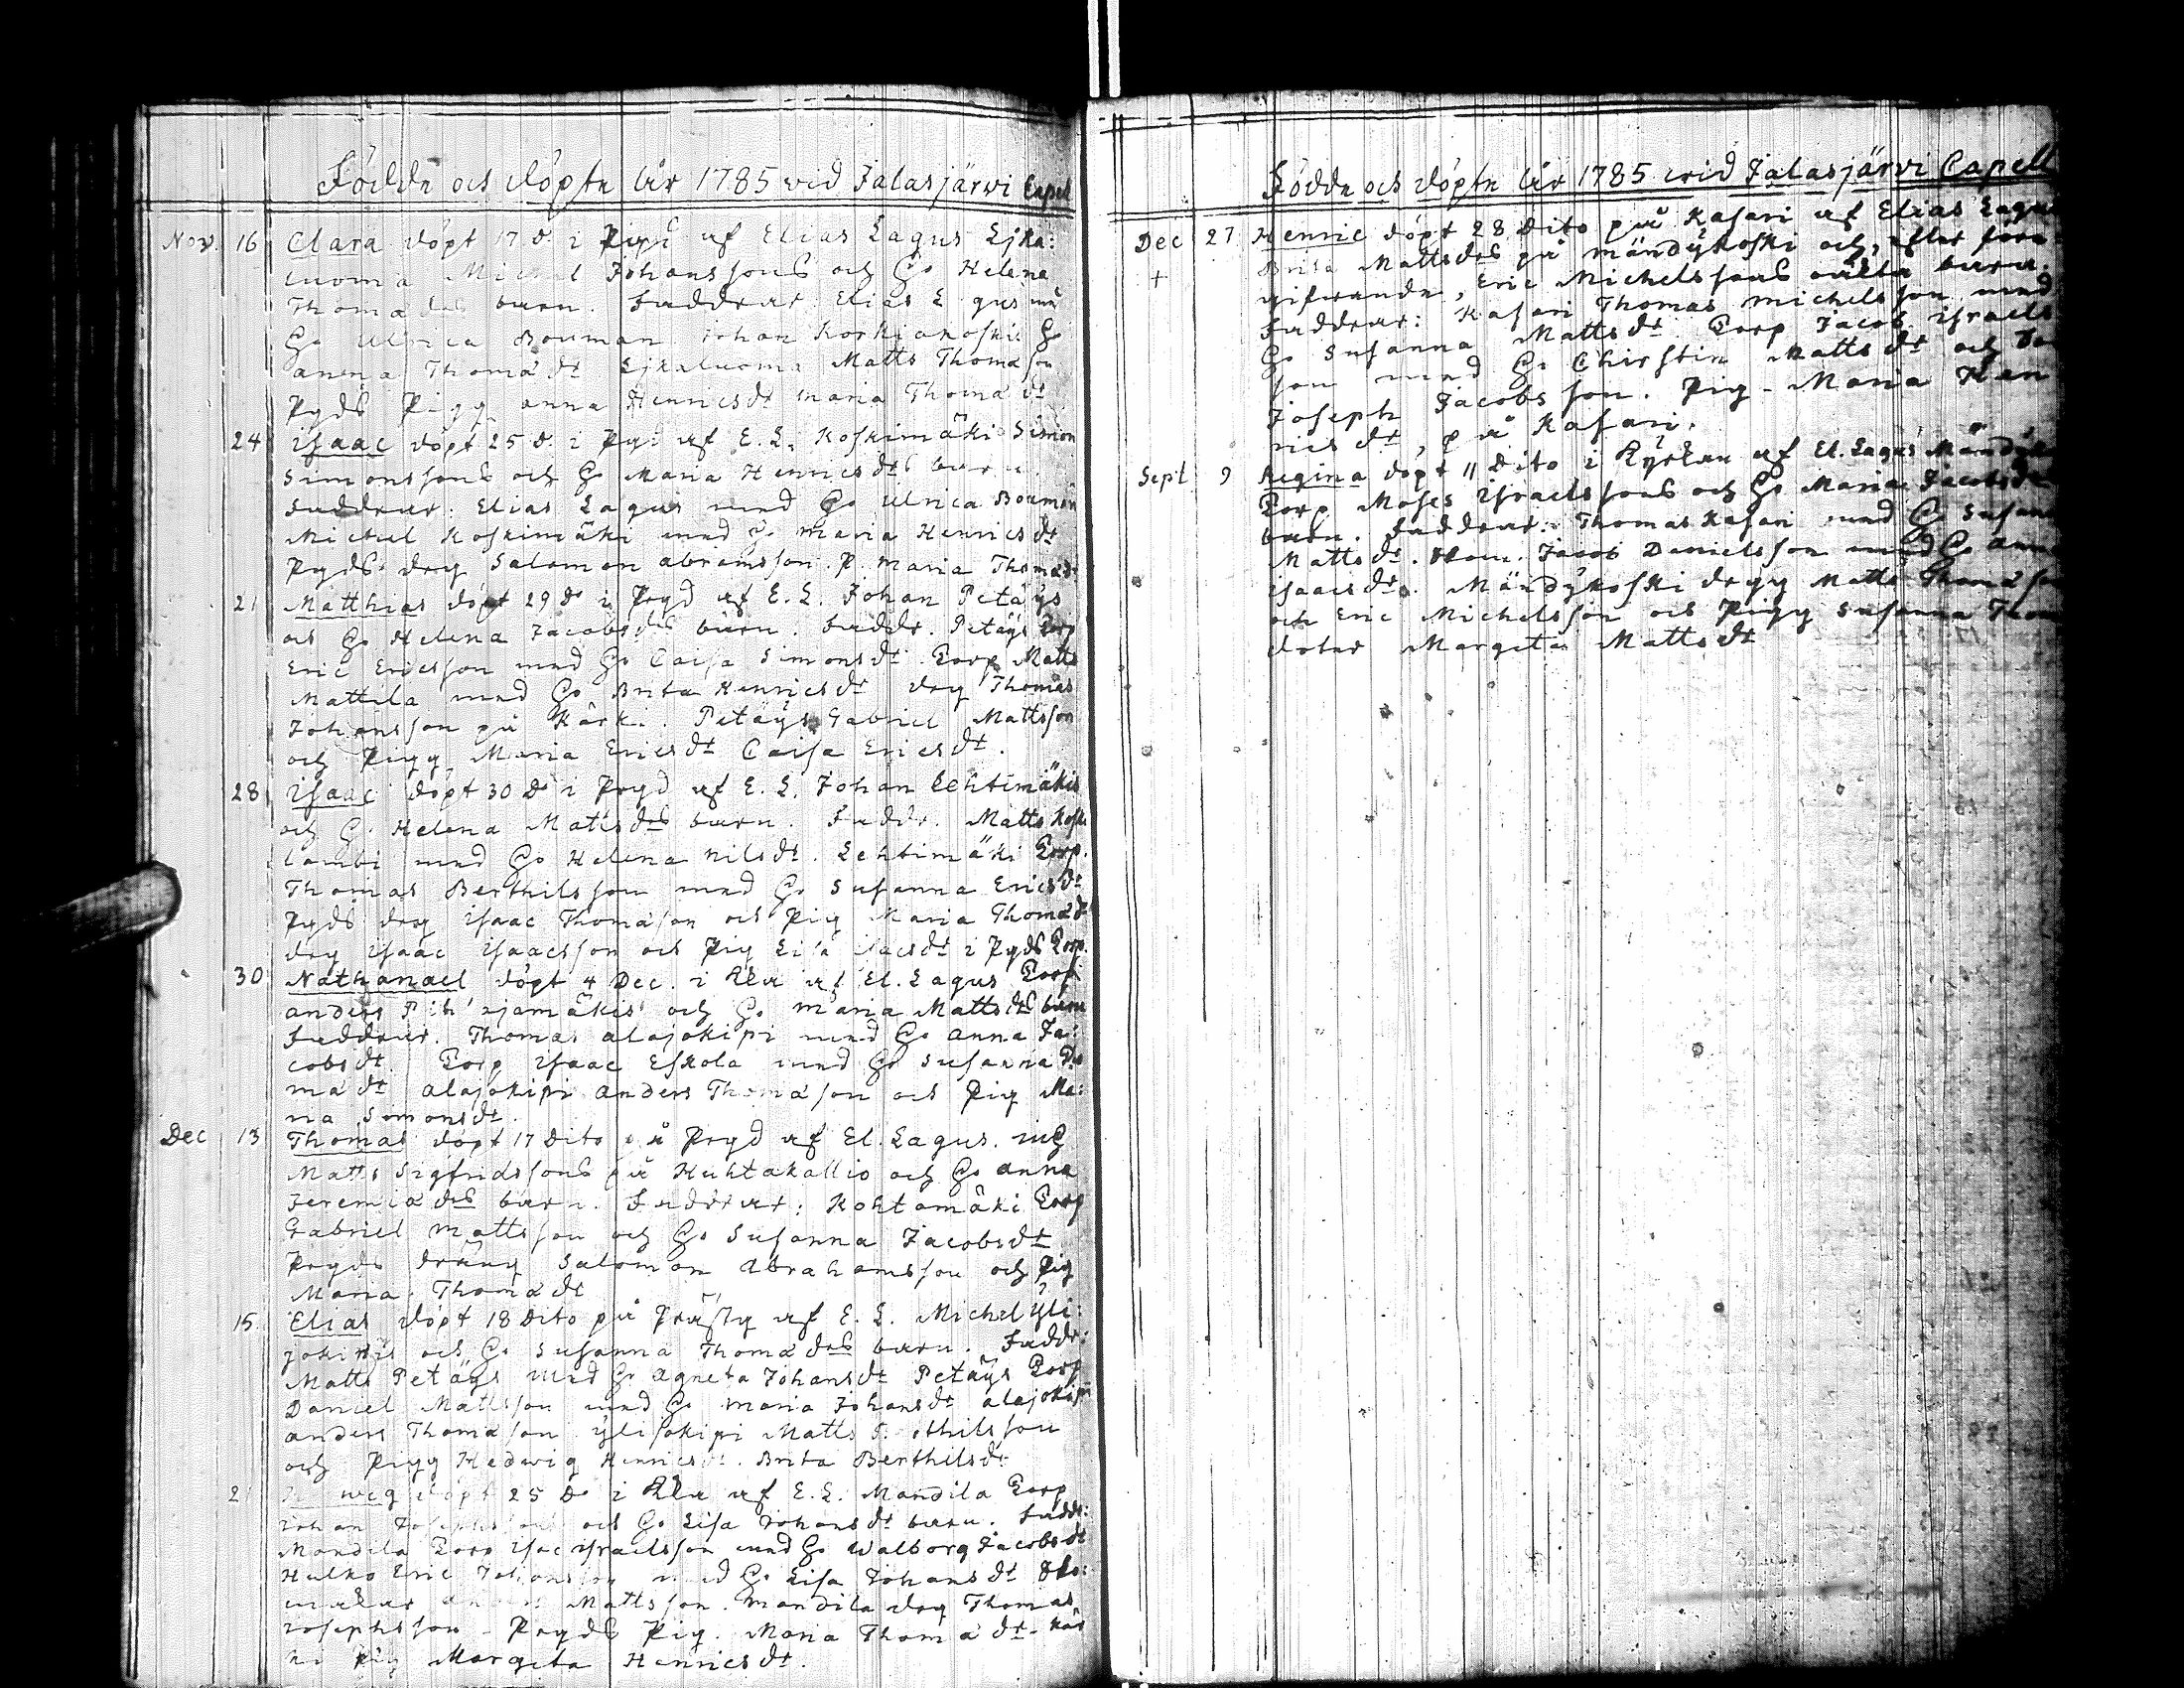 Födde och döpte År 1785 vid Jalasjärvi Capel
Nov. 16 Clara döpt 17 d. i Pgd af Elias Lagus Ejka:
luoma Michel Johanssons och H. Helena
Thomæ drs barn. Faddrar Elias Lagus m
H. Ulrica Bouman Johan Korkiakoski H.
anna Thomæ dr Ejkaluoma Matts Thomæson
Pgds Pigg anna Henricsdr Maria Thomæ dr
24 Isaac döpt 25 d. i Pgd af E. L. Koskimäki Simon
Simonssons och H. Maria Henricsdrs barn.
Faddrar. Elias Lagus med H. Ulrica Bouman
Michel Koskimäki med H. Maria Henricsdr
Pgds drg Salomon abramsson. P. Maria Thomædr
21 Matthias döpt 29 d. i Prgd af E. L. Johan Petäys
och H. Helena Jacobsdrs barn. Faddr. Petäys Torp
Eric Ericsson med H. Caisa Simonsdr Torp Matts
Mattila med H. Brita Henricsdr drg Thomas
Johansson på Kärki. Petäys Gabriel Mattsson
och Pigg Maria Ericsdr Caisa Ericsdr.
28 Isaac döpt 30 d. i Prgd af E. L. Johan Lehtimäkis
och H. Helena Mattsdrs barn. Faddr. Matts Koski
lambi med H. Helena Nilsdr. Lehtimäki Torp.
Thomas Berthilsson med H. Susanna Ericsdr
Pgds drg Isaac Thomæson och Pig Maria Thomædr
drg Isaac Isaacsson och Pig Lisa Isacsdr i Pgds Torp.
30 Nathanael döpt 4 Dec. i Kka af El. Lagus Torp
anders Pihlajamäkis och H. Maria Mattsdrs barn
Faddrar. Thomas alajokipi med H. anna Ja:
cobsdr Torp Isaac Eskola med H. Susanna Tho
mæ dr alajokipi anders Thomæson och Pig Ma:
ria Simonsdr.
Dec 13 Thomas döpt 17 Dito på Prgd af El. Lagus.
Matts Sigfridssons på Huhtakallio och H. anna
Jeremiæ drs barn. Faddrar: Kohtamäki Torp
Gabriel Mattsson och H. Susanna Jacobsdr
Prgds dräng Salomon Abrahamsson och Pig
Maria Thomæ dr
15 Elias döpt 18 Dito på Prästg af E. L. Michel Yli:
jokipis och H. Susanna Thomæ drs barn. Faddr:
Matts Petäys med H. Agneta Johansdr Petäys Torp
Daniel Mattsson med H. Maria Johansdr alajokipi
anders Thomæson Ylijokipi Matts Berthilsson
och Pigg Hedwig Henricsdr. Brita Berthilsdr
21 döpt 25 d. i Kka af E. L. Mandila Torp
Johan Josephssons och H. Lisa Johansdr barn. Faddr:
Mandila Torp Isac Israelsson med H. Walborg Jacobsdr
Hulko Eric Johansson med H. Lisa Johansdr Sko:
makar Mattsson. Mandila drg Thomas
Josephsson - Prgds Pig. Maria Thomæ dr - Kär
ki Pig Margeta Henricsdr.
Födde och döpte År 1785 vid Jalasjärvi Capell
Dec 27 Henric döpt 28 Dito på Kasari af Elias Lagus
+ Brita Mattsdrs på Mändykoski och, efter före
gifvande, Eric Michelssons oäkta barn.
Faddrar: Kasari Thomas Michelsson med
H. Susanna Mattsdr Torp Jacob Israels
son med H. Chirstin Mattsdr och
Joseph Jacobsson. Pig - Maria Hen
ricsdr, på Kasari.
Sept 9 Regina döpt 11 Dito i Kyrkan af El. Lagus Mändyk
Torp Moses Israelssons och H. Maria Jacobsdr
barn. Faddrar: Thomas Kasari med H. Susanna
Mattsdr. Jacob Danielsson med H. Anna
Isaacsdr. Mändykoski drgg Matts Thomæson
och Eric Michelsson och Pigg Susanna Thom
doter Margeta Mattsdr